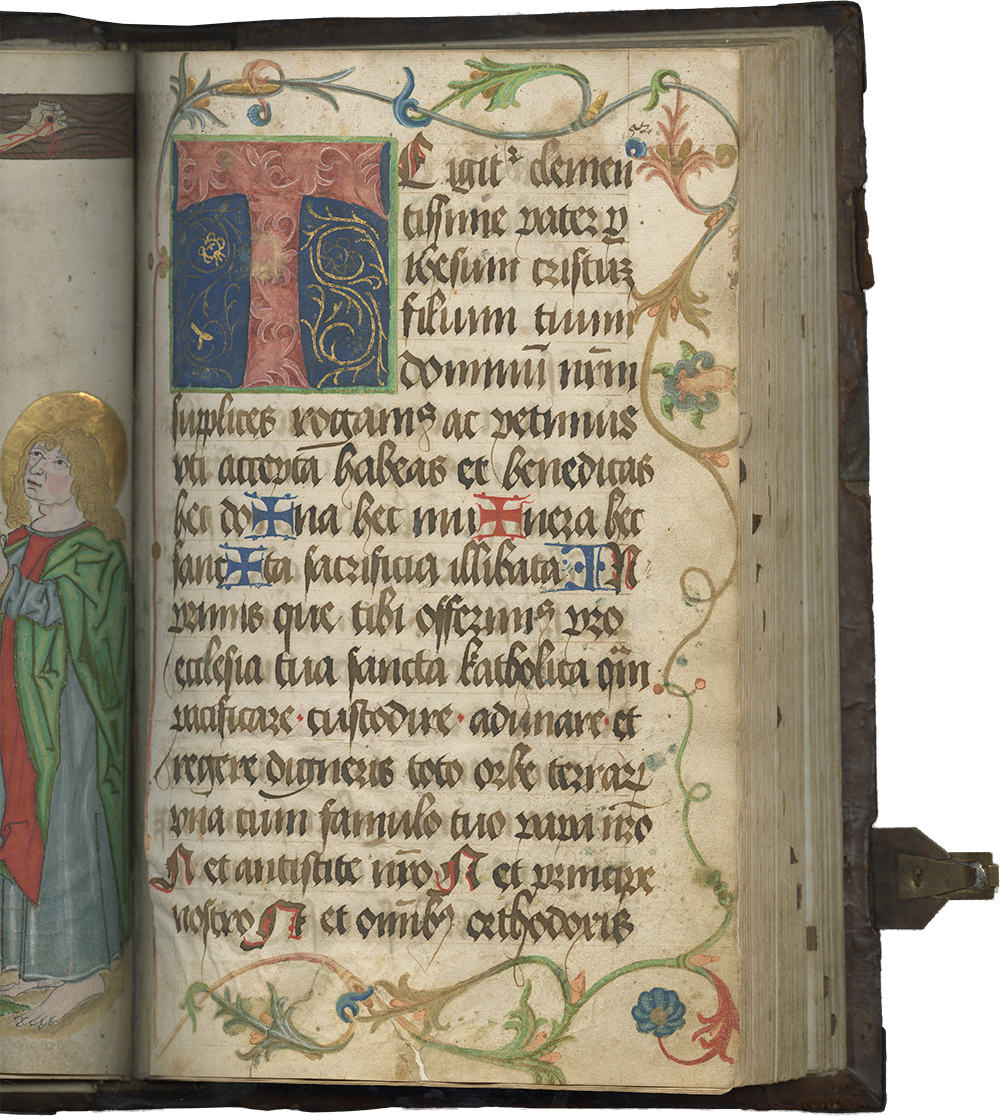 TE igit᷑ clemen
tissime pater ꝑ
ihesum cristuꝫ
filium tuum
dominū nr̄m
supplices rogam᷒ ac petimus
vti accepta habeas et benedicas
hec do✠na hec mu✠nera hec
sanc✠ta sacrificia illibata IN
primis que tibi offerim᷒ pro
ecclesia tua sancta katholica qm̄
pacificare · custodire · adunare · et
regere digneris toto orbe terraꝝ
vna cum famulo tuo papa nr̄o
N et antistite nr̄o N et principe
nostro N et omnib᷒ orthodoxis